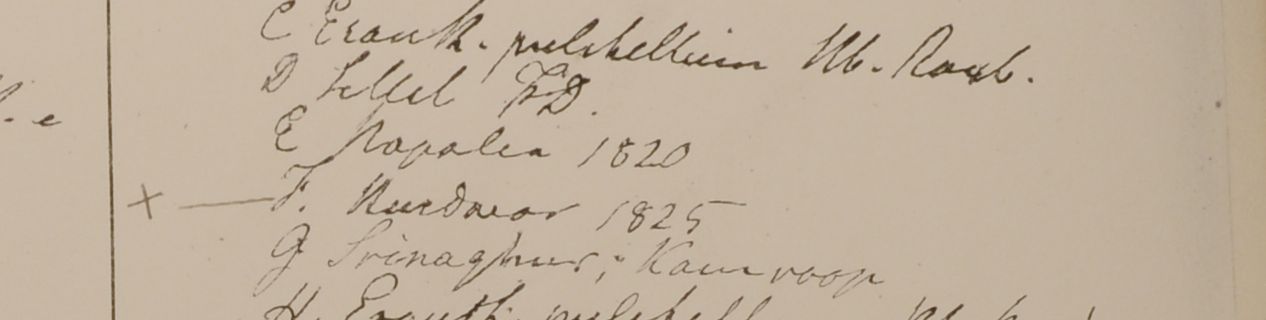 C Eranth. pulchellum Hb. Roxb.
D Silhet FD.
E Napalia 1820
X — F. Hurdwar 1825
G Srinaghur; Kamroop
H. Eranth. pulchell